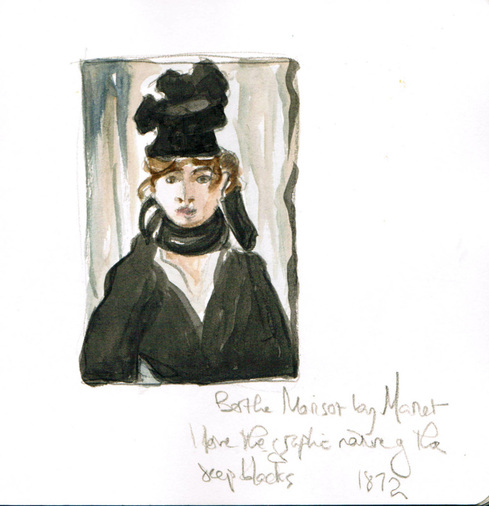 Berthe Morisot by Manet
I love the graphic nature of the
deep blacks 1872